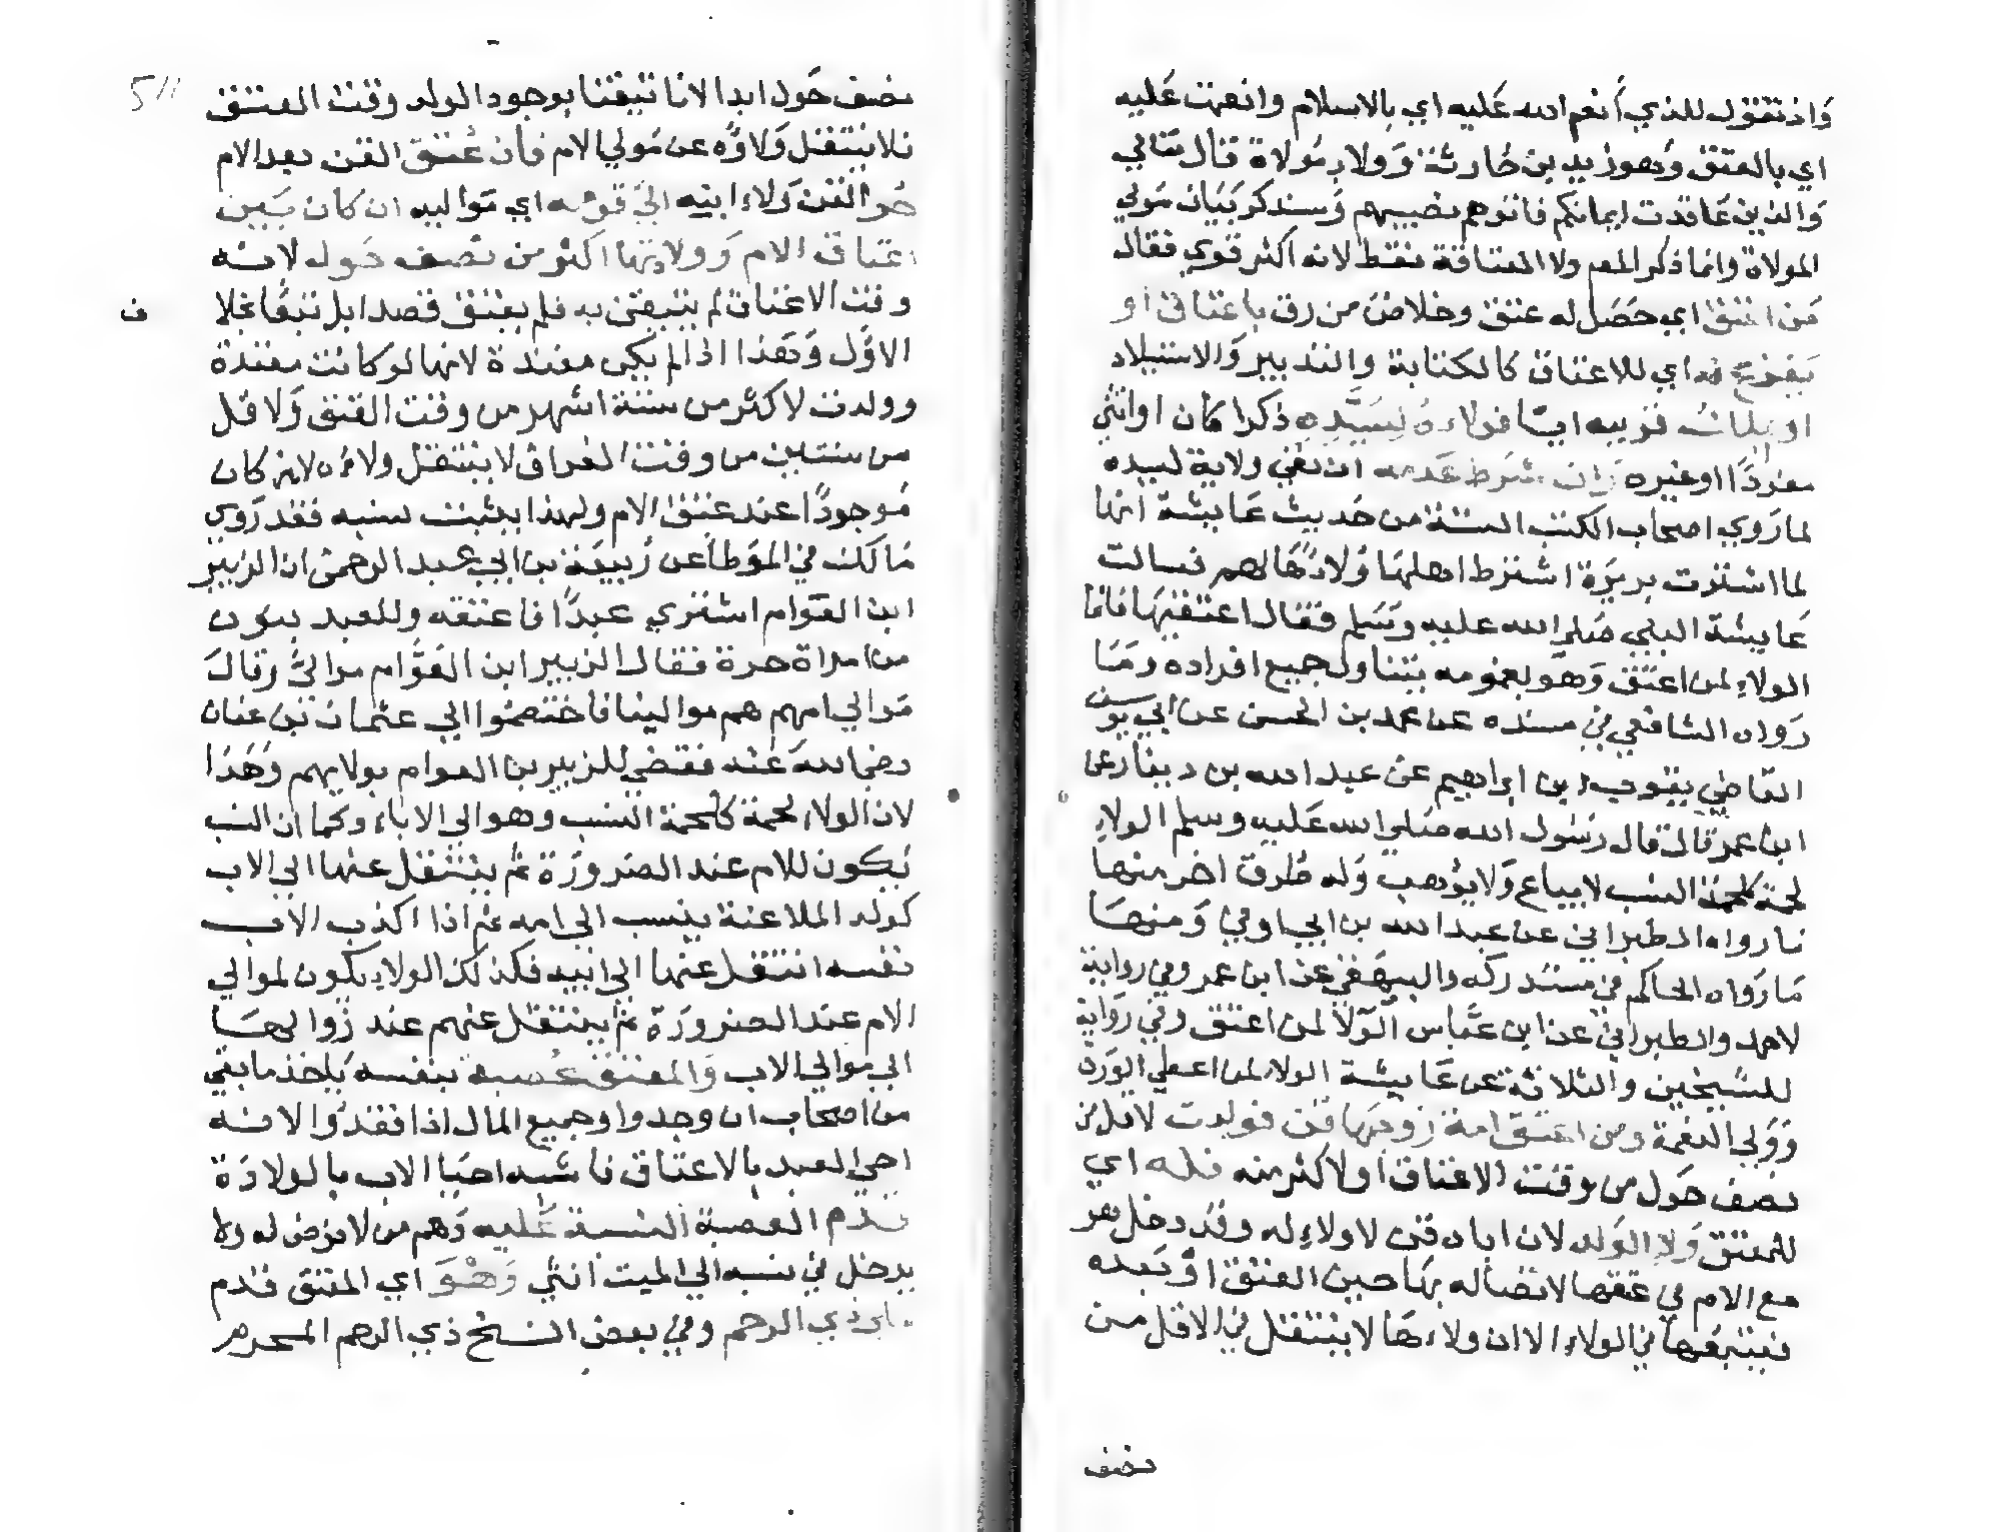 وَاذ تقول للذي أنعم الله عَليه اي بالاسلام وانعمت عَليه
اي بالعتق وَهو زيد بن حَارثة وَولاء مُولاة قال تعالي
وَالذين عَاقدت ايمانكم فاتوهم نصيبهم وَسنذكر بَيَان مَولي
المولاة وانما ذكر المصم ولا العتاقة فقط لانه اكثر قوي فقال
مَن اعتق اي حَصَل له عتق وخلاص من رق باعتاق او
بفرع له اي للاعتاق كالكتابة والتدبير وَالاستيلاد
او بملك قريبه ايا فولاءهُ لسَيّدِه ذكرا كان اوانثي
مفردًا اوغيره وَان شرَط عَدمه اي نفي ولاية لسيده
لما رَوي اصحاب الكتب الستة من حَديث عَايشة انها
لما اشترت بريرَة اشترط اهلهَا وَلاءهَا لهم فسالت
عَايشة النبي صَلي الله عليه وسَلم فقال اعتقيهَا فانما
الولاء لمن اعتق وَهو بعمومه يتناول جميع افراده وَمَا
رَواه الشافعي في مسنده عن محمد بن الحسن عن ابي يوسف
القاضي يعقوب بن ابراهيم عن عبد الله بن دينار عن
ابن عمر قال قال رسُول الله صَلي الله عَليه وسلم الولاء
لحمة كلحمة النسب لا يباع وَلا يوهب وَله طرق اخر منها
ما رواه الطبراني عن عبد الله بن ابي اوفي وَمنهَا
مَا رَواه الحاكم في مستدركه والبيهقي عن ابن عمر وفي رواية
لاحمد والطبراني عن ابن عَباس الوَلا لمن اعتق وفي رَواية
للشيخين والثلاثة عن عَايشة الولاء لمن اعطي الورق
وَوَلي النعمة ومن اعتق امة زوجهَا قن فولدت لاقل من
نصف حَول من وقت الاعتاق او لاكثر منه فله اي
للمعتق وَلاء الوَلد لان اباه قن لا ولاء له وقد دخل هو
مع الام في عتقها لاتصاله بهَا حين العتق اوْ بَعده
فيتبعهَا في الولاء الا ان ولاءهَا لا ينتقل في الاقل من
نصف
نصف حَول ابدا لانا تيقنا بوجود الولد وقت العتق
فلا ينتقل وَلاؤه عن مَولي الام فان عُتق القن بعد الام
جر القن وَلاء ابنه الي قومه اي مَواليه ان كان بَين
اعتاق الام وَولادتها اكثر من نصف حَول لانه
وقت الاعتاق لم يتيقن به فلم يعتق قصدا بل تبعًا بخلا
ف
الاوّل وَهَذا اذا لم يكن معتدة لانها لو كانت معتدة
وولدت لاكثر من ستة اشهر من وقت العتق وَلاقل
من سنتين من وقت الفراق لا ينتقل ولاءه لانه كان
مَوجودًا عند عتق الام ولهذا يثبت نسبه فقد رَوي
مَالك في الموَطا عن رَبيعَة بن ابي عبد الرحمن ان الزبير
ابن العوّام اشتري عبدًا فاعتقه وللعبد بنون
من امراة حرة فقال الزبير ابن العَوّام موالي وقالَ
مَوالي امهم هم موالينا فاختصموا الي عثمان بن عفان
رضي الله عَنه فقضي للزبير بن العوام بولايهم وَهَذا
لان الولاء لحمة كلحمة النسب وهو الي الاباء وكما ان النسب
يَكون للام عند الضرورَة ثم ينتقل عنها الي الاب
كولد الملاعنة ينسب الي امه ثم اذا اكذب الاب
نفسه انتقل عنها الي ابيه فكذلك الولاء يكون لموالي
الام عند الضرورَة ثم ينتقل عنهم عند زوالهَا
الي موالي الاب وَالمعتق عصبة بنفسه يَاخذ ما بقي
من اصحاب ان وجدوا وجميع المال اذا فقدُوا لانه
احيا العبد بالاعتاق فاشبه احيَا الاب بالولادَة
قدم العصبة النسبة عَليه وَهم من لا فرض له ولا
يدخل في نسبه الي الميت انثي وَهوَ اي المعتق قدم
علي ذي الرحم وفي بعض النسخ ذي الرحم المحرم